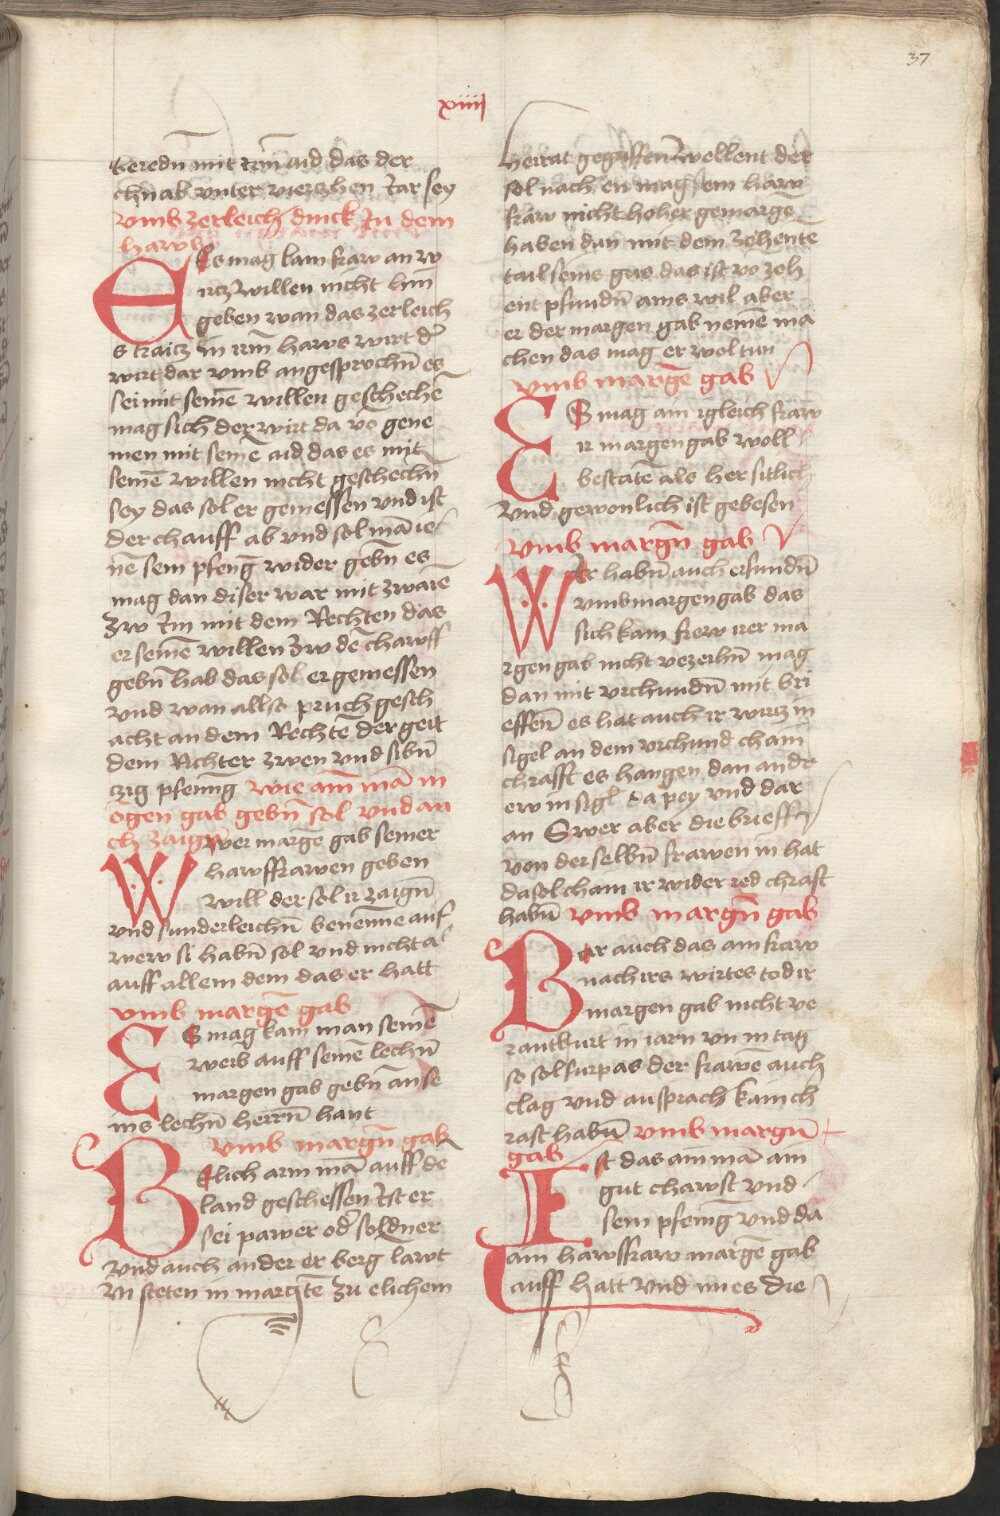 37
xiiij
beredn̄ mit irm̄ aid das der
chnab vnter vierzehen Jar sey
vmb zerleich dinck Jn dem
haws
Es mag kain fraw an w
irtz willen nicht hin
geben wan das zerleich
s traitz in irm̄ haws wirt d̄
wirt dar vmb angesprochn̄ es
sei mit seinē willen geschechē
mag sich der wirt da vō gene
men mit seinē aid das es mit
seinē willen nicht geschechn̄
sey das sol er geniessen vnd ist
der chauff ab vnd sol mā ie
nē sein pfenḡ wider gebn̄ es
mag dan diser war mit zwaiē
zw Jm mit dem Rechten das
er seinē willen zw dē chawff
gebn̄ hab das sol er geniessen
vnd wan allso pruch gesch
acht an dem Rechtē der geit
dem Richter zwen vnd sibn̄
tzig pfennig wie ain mā m
orgen gab gebn̄ sol vnd au
ch zaign̄
Wer margē gab seiner
hawsffrawen geben
will der sol ir zaign̄
vnd sunderleichn̄ benenne auf
wew si habn̄ sol vnd nicht a
auff allem dem das er hatt
vmb margē gab
ES mag kain man seinē
weib auff seinē lechn̄
margen gab gebn̄ an se
ins lechn̄ herrn̄ hant
vmb margn̄ gab
Etlich arm mā auff dē
land geschessen Jst er
sei pawer odē soldner
vnd auch ander er berg lawt
vn steten in marctē zu elichem
heirat gegriffen wellent der
sol nach en mag sein haws
fraw nicht hoher gemargē
haben dan mit dem zehente
tail seins gus das ist vō zeh
ent pfundn̄ ains wil aber
er der margen gab nemē ma
chen das mag er wol tun
vmb margē gab
ES mag ain igleich fraw
ir margen gab woll
bestatē als her sitlich
vnd gewonlich ist gebesen
vmb margn̄ gab
Wir habn̄ auch erfundn̄
vmb margen gab das
sich kain frew irer ma
rgen gab nicht vezeihn̄ mag
dan mit vrchundn̄ mit bri
effen̄ es hat auch ir wirtz in
sigel an dem vrchund chain
chrafft es hangen dan andr
ew in sigl da pey vnd dar
an Swer aber die brieff
von der selbn̄ frawen in hat
da sol chain ir wider red chraft
habn̄ vmb margn̄ gab
Bar auch das ain fraw
nach irs wirtes tod ir
margen gab nicht ve
rantburt in iarn vn in tag
so sol furpas der frawē auch
clag vnd ansprach kain ch
raft habn̄ vmb margn̄
gab
Ist das ain mā ain
gut chawft vnd
sein pfenig vnd da
ain hawsfraw margē gab
auff hatt vnd im es die